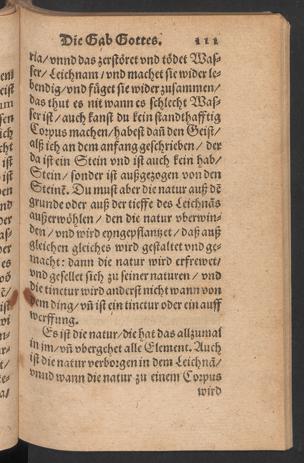 Die Gab Gottes. 111
ria/ vnnd das zerstöret vnd tödet Was-
ser/ Leichnam/ vnd machet sie wider le-
bendig/ vnd füget sie wider zusammen/
das thut es nit wann es schlecht Was-
ser ist/ auch kanst du kein standhafftig
Corpus machen/ habest dañ den Geist/
als ich an dem anfang geschrieben/ der
da ist ein Stein vnd ist auch kein hab/
Stein/ sonder ist außgezogen von den
Steinē. Du must aber die natur auß dē
grunde oder auß der tieffe des Leichnās
außerwöhlen/ den die natur vberwin-
den/ vnd wird eyngepflantzet/ daß auß
gleichen gleiches wird gestaltet vnd ge-
macht: dann die natur wird erfrewet/
vnd gesellet sich zu seiner naturen/ vnd
die tinctur wird anderst nicht wann von
dem ding/ vñ ist ein tinctur oder ein auff
werffung.
Es ist die natur/ die hat das allzumal
in jm/ vñ vbergehet alle Element. Auch
ist die natur verborgen in dem Leichnā/
vnnd wann die natur zu einem Corpus
wird